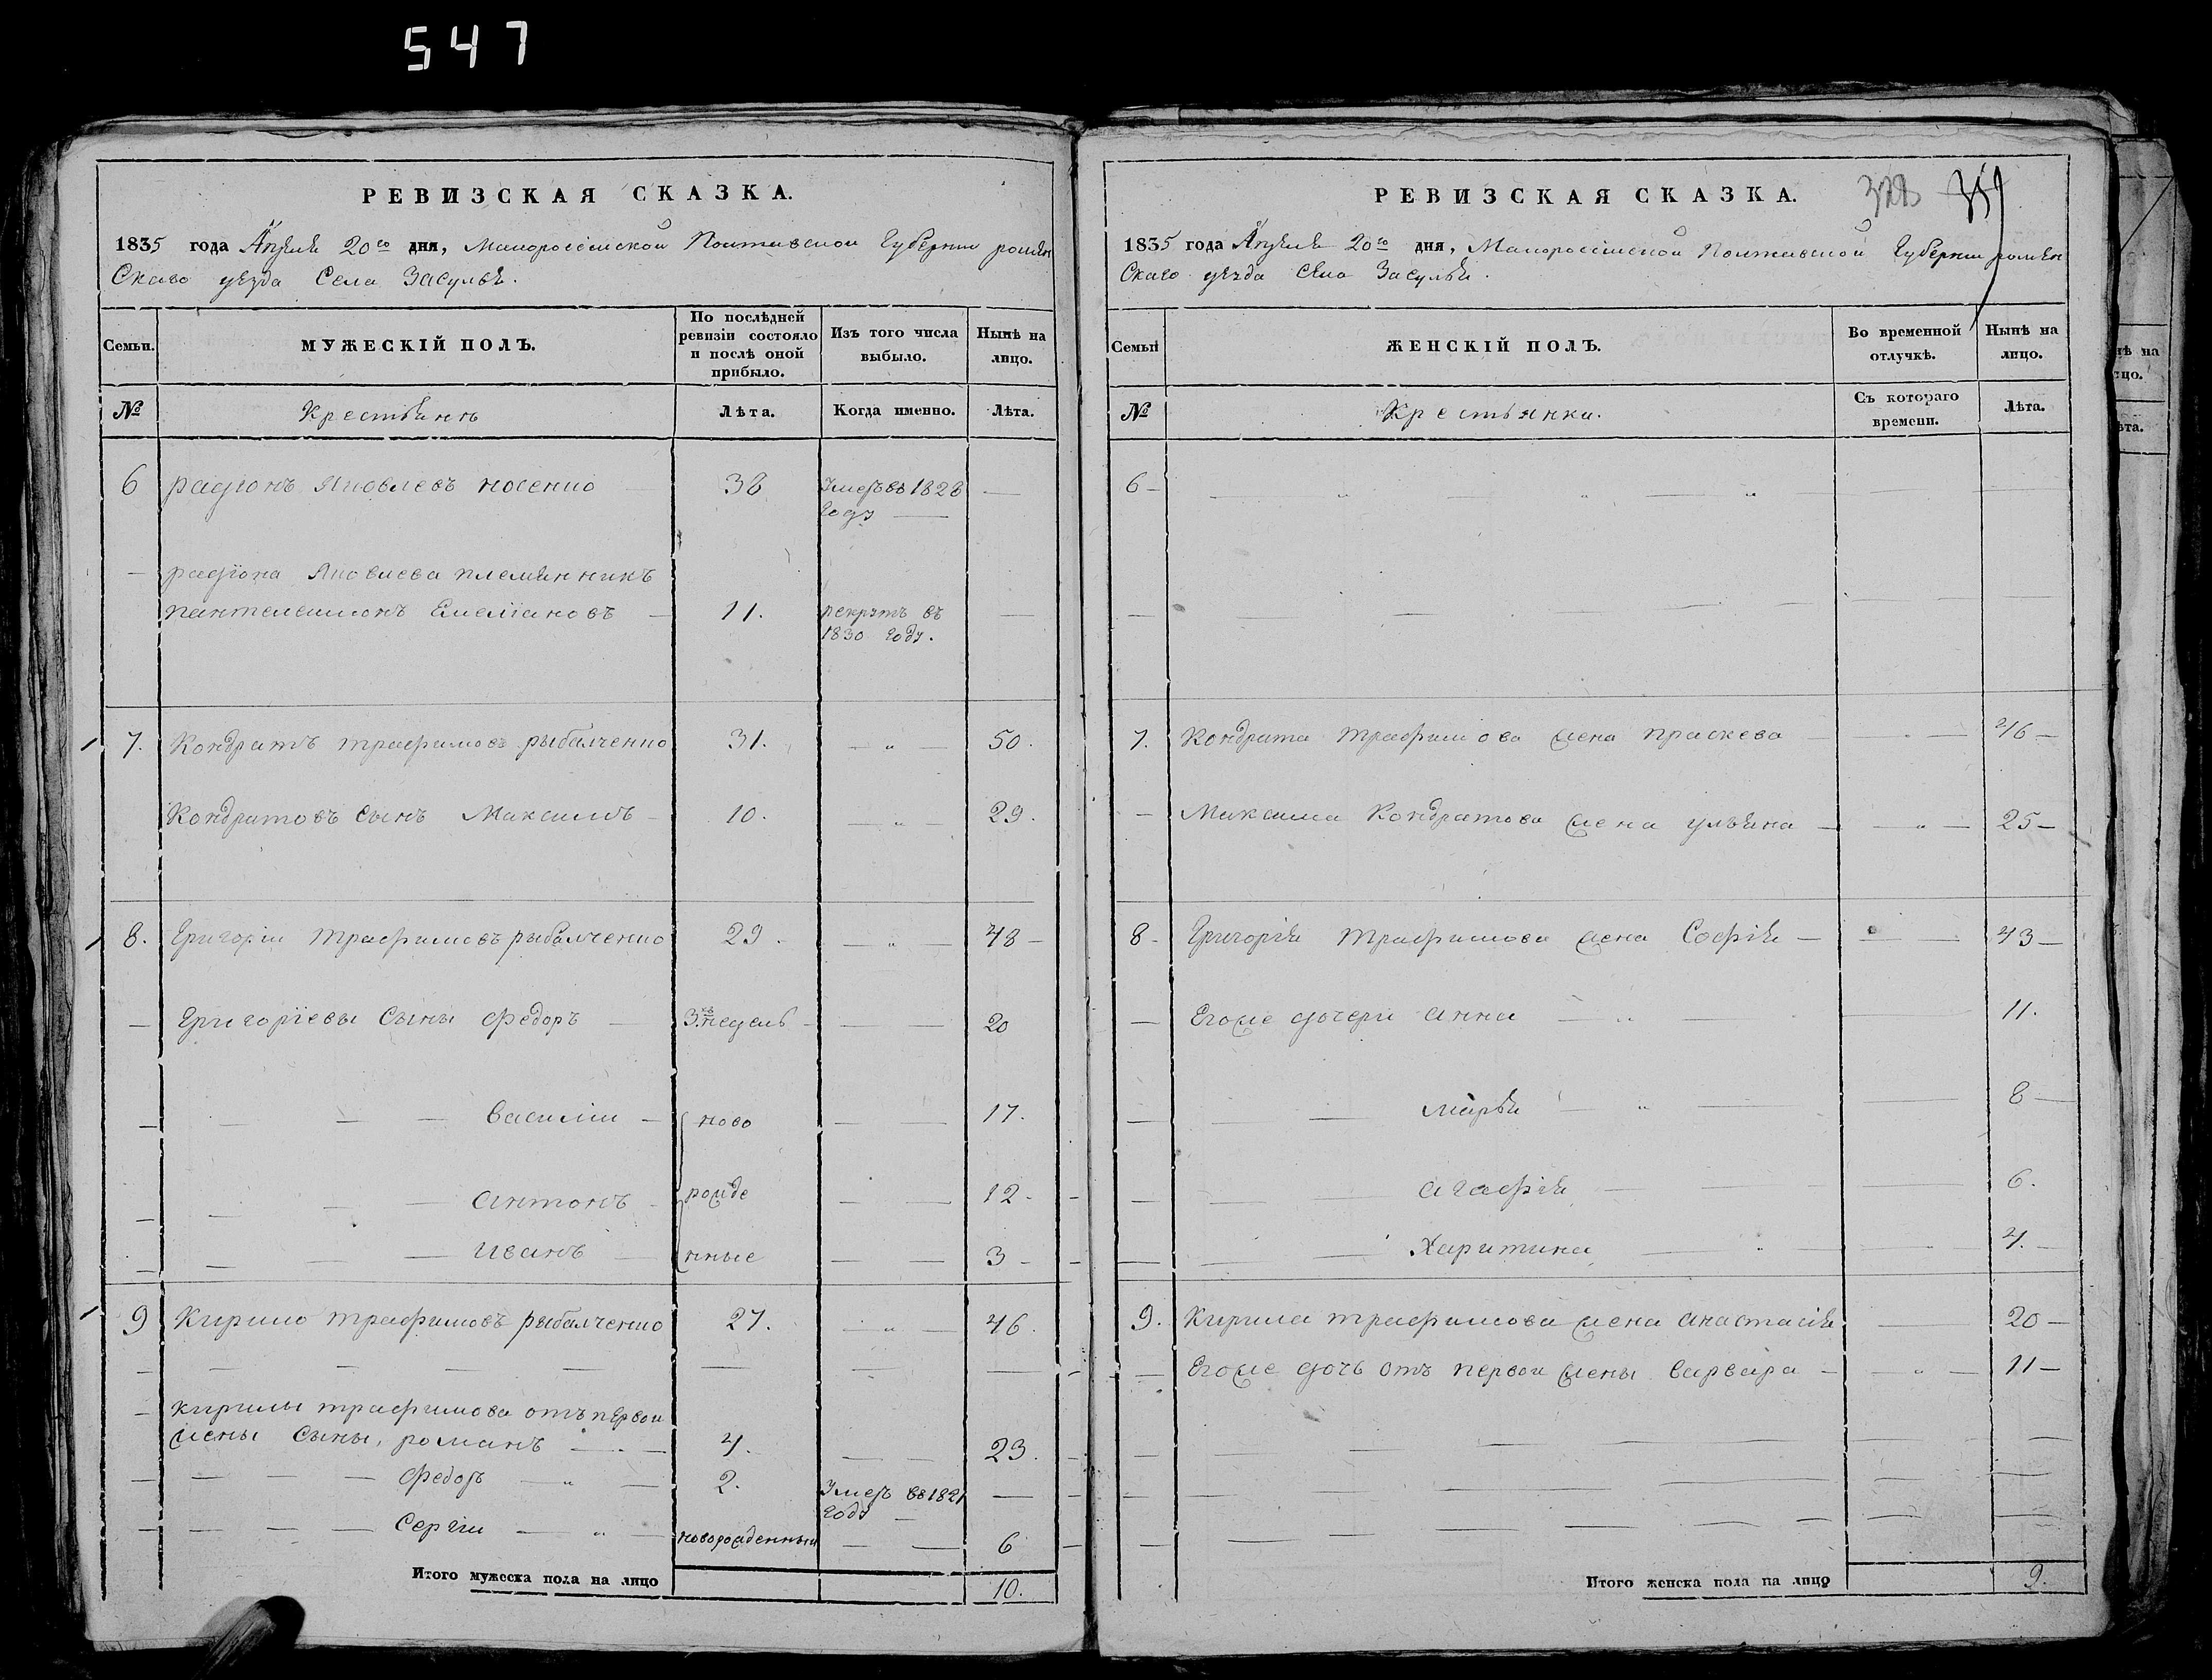 547
РЕВИЗСКАЯ СКАЗКА.
1835 года Апреля 20го дня, Малороссійской Полтавской Губерніи ромен
Скаго уезда Села Засулья.
Семьи.
МУЖЕСКІЙ ПОЛЪ.
По послѣдней ревизіи состояло и послѣ оной прибыло.
Изъ того числа выбыло.
Нынѣ на лицо.
№
Крестьянъ
Лѣта.
Когда именно.
Лѣта.
6 радіонъ Яковлевъ носенко 38 Умеръ въ 1828 —
году —
— радіона Яковлева племянникъ
пантелеимонъ Емеліановъ — 11. рекрутъ въ —
1830 году.
7. Кондратъ трафимовъ рыбалченко 31. — „ — 50.
Кондратовъ сынъ Максимъ — 10. — „ — 29.
8. Григоріи трафимовъ рыбалченко 29. — „ — 48 —
— Григоріевы Сыны федоръ — 3хъ недель — — — 20
— — — — василіи — ново — — 17.
— — — — антонъ — рожде — — 12 —
— — — — иванъ — нные — — 3 —
9 Кирило трафимовъ рыбалченко 27. — „ — 46.
— кирилы трафимова отъ первои
жены сыны, романъ — „ — 4. — — 23.
— — — — федоръ — „ — 2. Умеръ въ 1821 —
году —
— — — — Сергіи — „ — новорожденныи — — 6
Итого мужеска пола на лицо 10.
РЕВИЗСКАЯ СКАЗКА.
328 351
1835 года Апреля 20го дня, Малороссійской Полтавской Губерніи ромен
Скаго уезда Села Засулья.
Семьи
ЖЕНСКІЙ ПОЛЪ.
Во временной отлучкѣ.
Нынѣ на лицо.
№
Крестьянки.
Съ котораго времени.
Лѣта.
6 — — „ — „ — „ — — —
7. Кондрата трафимова жена праскева — — „ — 46 —
— Максима Кондратова жена ульяна — — „ — 25 —
8 — Григорія трафимова жена Софія — — — 43 —
— Егоже дочери анна — „ — — 11.
— — марья — „ — — 8 —
— — агафія — — 6.
— — Харитина — „ — 4. —
9. Кирила трафимова жена анастасія — 20 —
— Егоже дочь отъ первои жены варвара — — „ — 11 —
Итого женска пола на лицо 9.